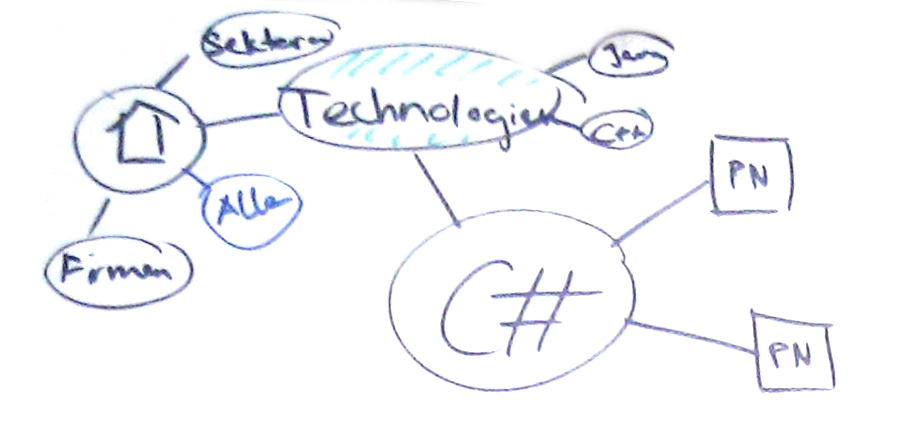 Sektoren
Technologien
Java
C++
Alle
Firmen
C#
PN
PN